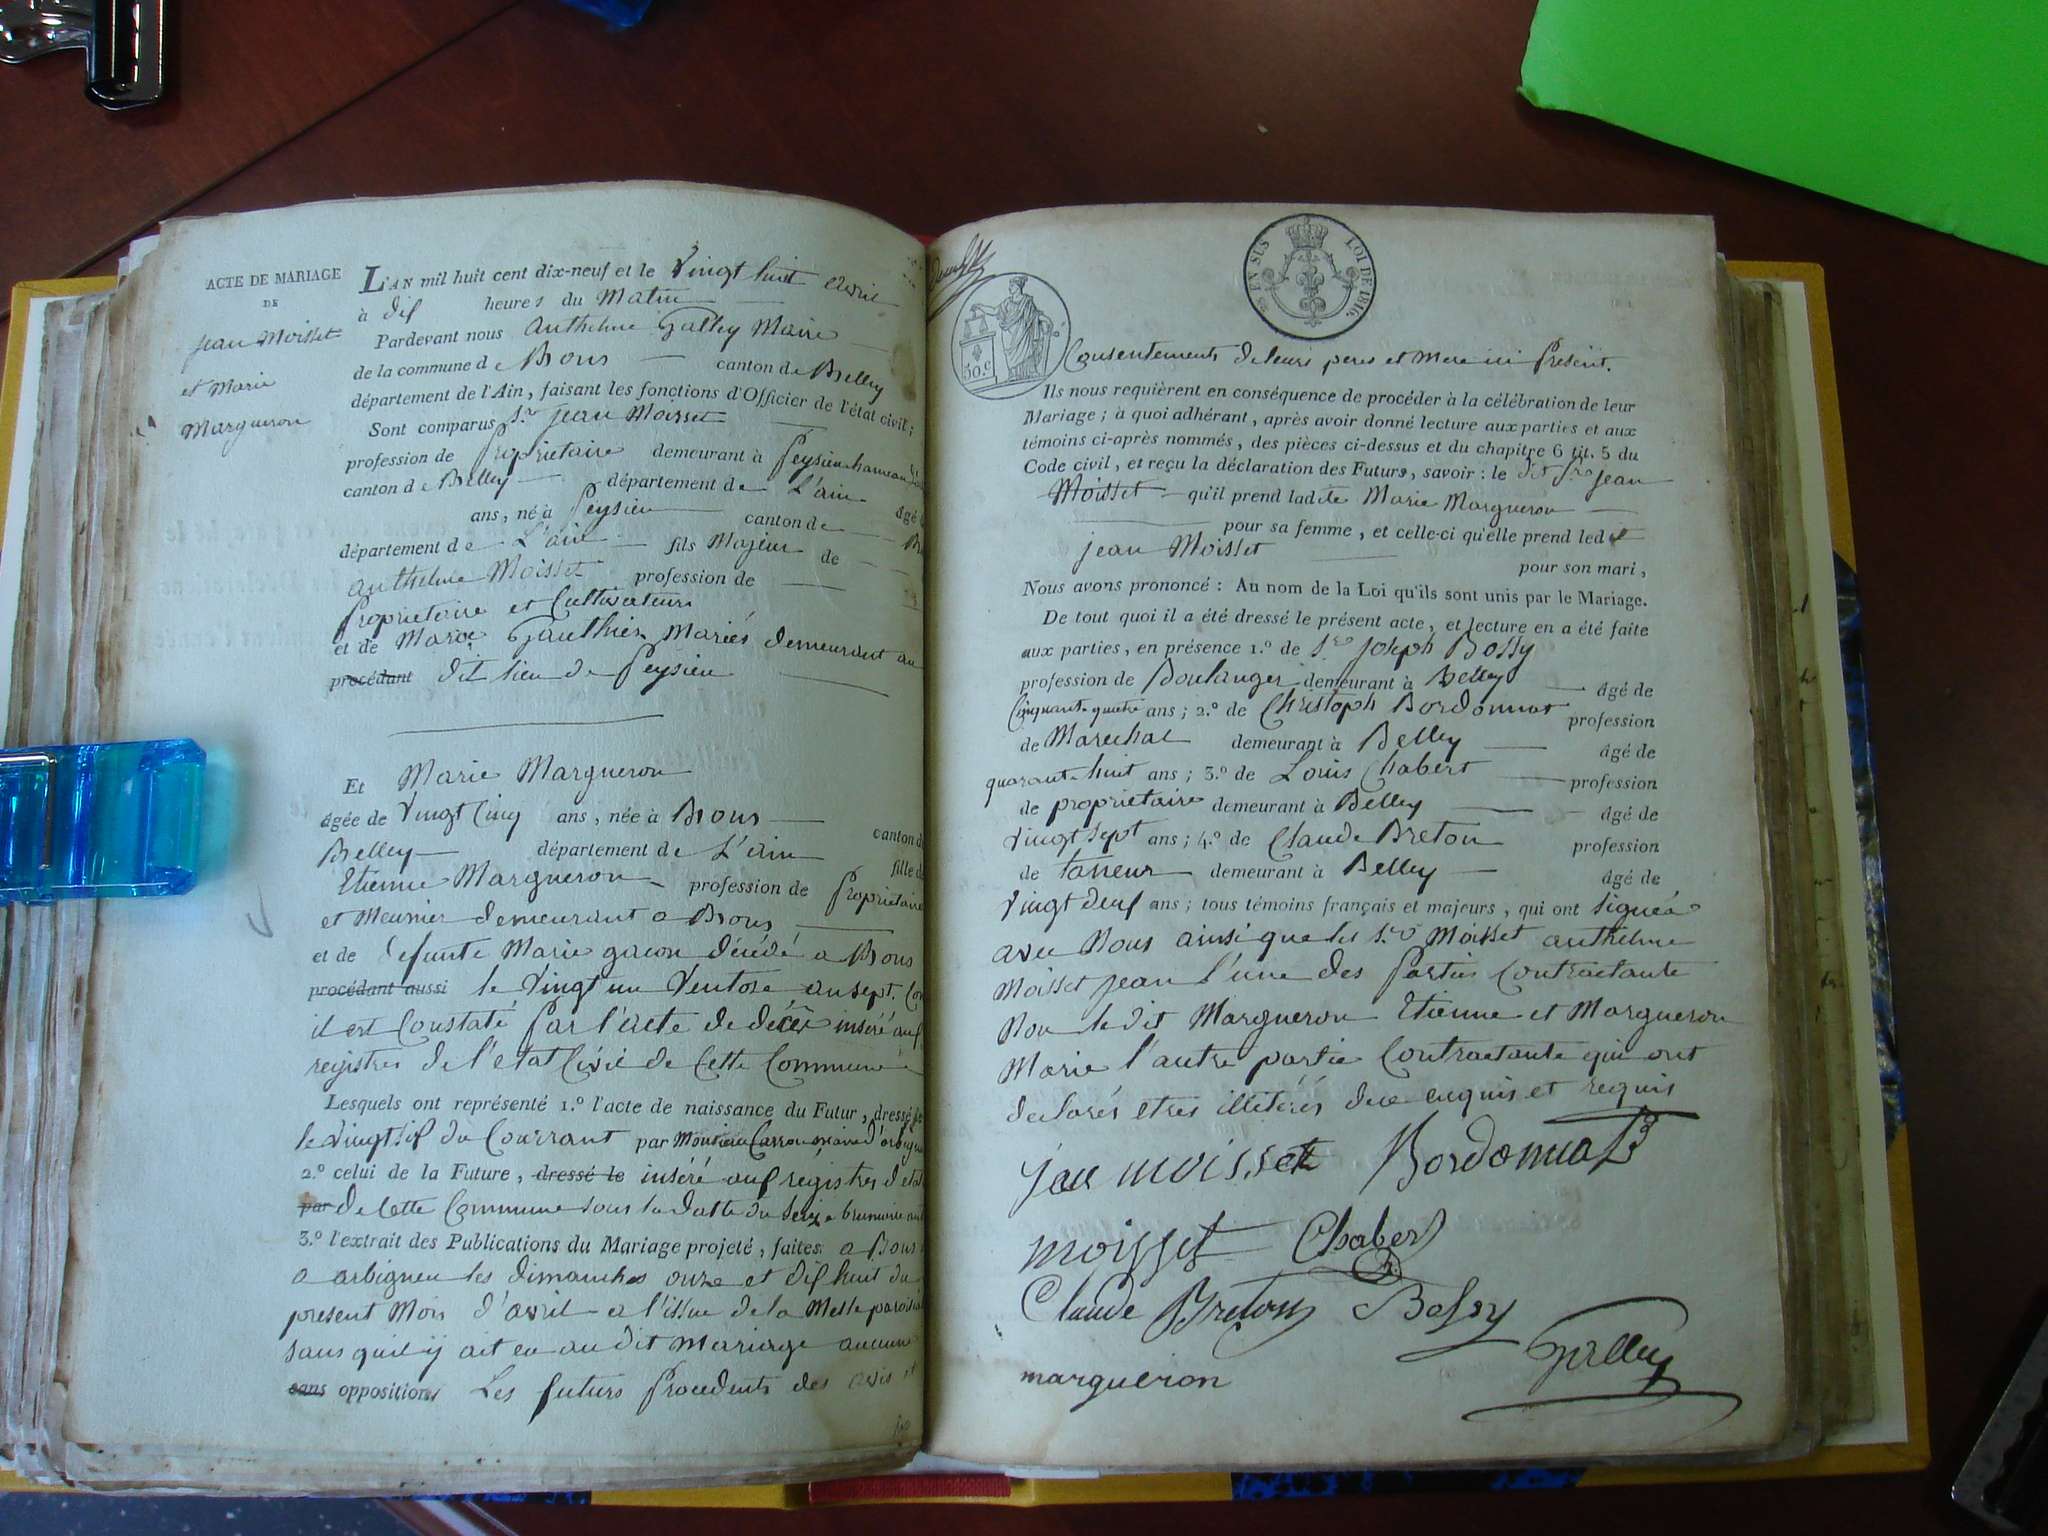 ACTE DE MARIAGE
DE
jean Moisset
et Marie
Margueron
L'AN mil huit cent dix-neuf et le Vingt huit avril
à dix heures du Matin
Pardevant nous Anthelme Galley Maire
de la commune de Brons canton de Belley
département de l'Ain, faisant les fonctions d'Officier de l'état civil;
Sont comparus Sr jean Moisset
profession de Proprietaire demeurant à Peysieu hameau
canton de Belley département de L'ain âgé
ans, né à Peysieu canton de
département de L'ain fils Majeur de
anthelme Moisset profession de
Proprietaire et Cultivateur
et de Marie Gauthier Mariés demeurant au
procédant dit lieu de Peysieu
Et Marie Margueron
âgée de Vingt Cinq ans, née à Brons canton de
Belley département de L'ain fille de
Etienne Margueron profession de Proprietaire
et Meunier demeurant a Brons
et de defunte Marie gacon décédé a Brons
procédant aussi le Vingt un Ventose an sept. Co
il est Constaté par l'acte de décès inséré aux
registres de l'etat Civil de Cette Commune
Lesquels ont représenté 1.º l'acte de naissance du Futur, dressé
le Vingt six du Courrant par Monsieur Carron maire d'arbigneu
2.º celui de la Future, dressé le inséré aux régistres d'etat
par de Cette Commune sous la datte du seize brumaire an
3.º l'extrait des Publications du Mariage projeté, faites a Brons
a arbigneu les dimanches onze et dix huit du
present Mois d'avril a l'issue de la Messe paroissial
sans quil ÿ ait eu au dit Mariage aucune
sans oppositions Les futurs Procedents des avis et
50.C
EN SUS LOI DE 1816.
Consentements de leurs peres et Mere ici Present.
Ils nous requièrent en conséquence de procéder à la célébration de leur
Mariage; à quoi adhérant, après avoir donné lecture aux parties et aux
témoins ci-après nommés, des pièces ci-dessus et du chapitre 6 tit. 5 du
Code civil, et reçu la déclaration des Futurs, savoir: le dit Sr jean
Moisset qu'il prend ladite Marie Margueron
pour sa femme, et celle-ci qu'elle prend ledit
jean Moisset pour son mari,
Nous avons prononcé: Au nom de la Loi qu'ils sont unis par le Mariage.
De tout quoi il a été dressé le présent acte, et lecture en a été faite
aux parties, en présence 1.º de Sr Joseph Bossy
profession de Boulanger demeurant à Belley âgé de
Cinquante quatre ans; 2.º de Christoph Bordonnat profession
de Marechal demeurant à Belley âgé de
quarante huit ans; 3.º de Louis Chabert profession
de proprietaire demeurant à Belley âgé de
Vingt Sept ans; 4.º de Claude Breton profession
de tanneur demeurant à Belley âgé de
Vingt deux ans; tous témoins français et majeurs, qui ont signés
avec Nous ainsi que les Srs Moisset anthelme
Moisset jean l'une des Parties Contractante
Non le dit Margueron Etienne et Margueron
Marie l'autre partie Contractante qui ont
declarés etres illitérés de ce enquis et requis
jean moisset Bordonnat
moisset Chabert
Claude Breton Bossy
margueron Galley